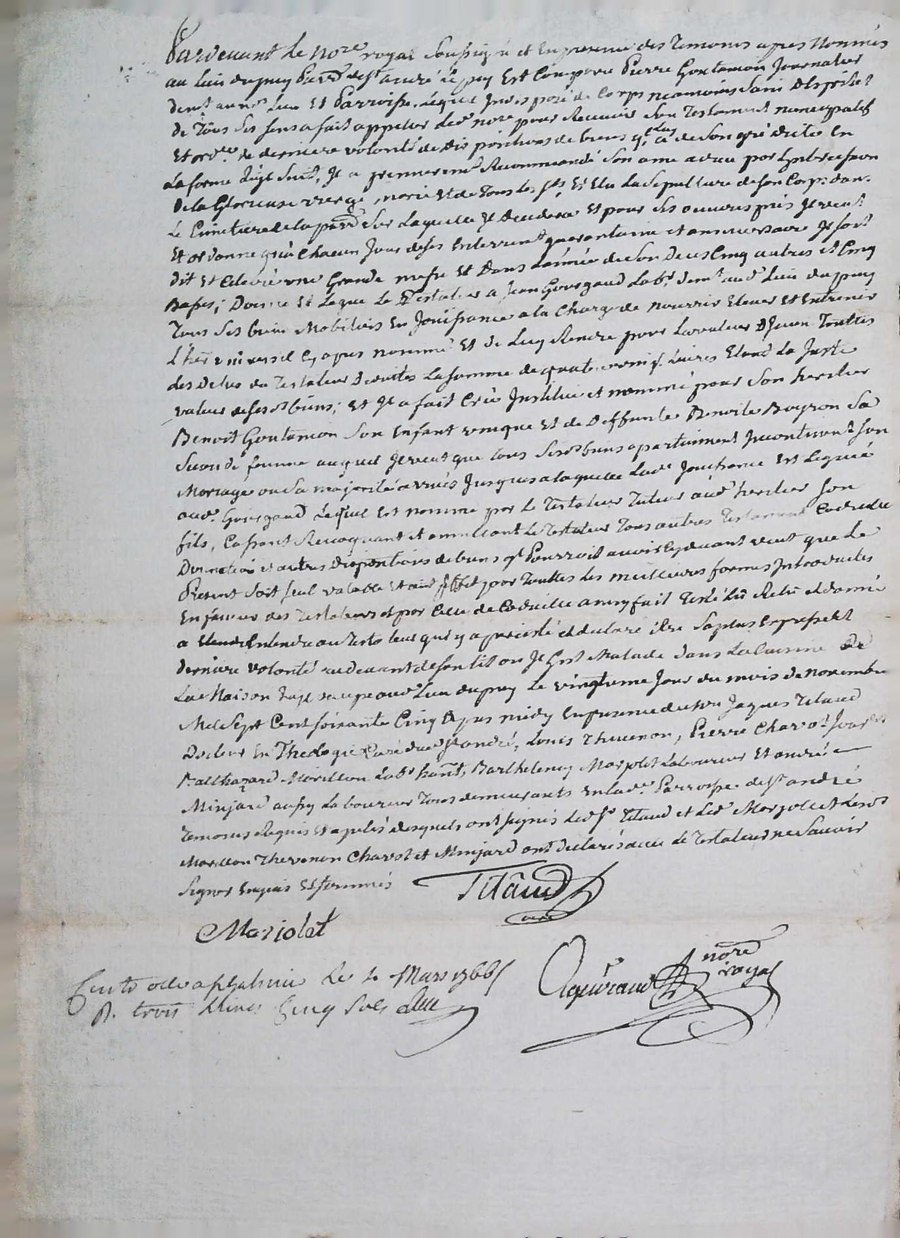 Pardevant le nore royal soussigné et en presence des temoins apres nommés
au lieu dupuy parr. de st andré le puy est comparu Pierre Goutamon Journalier
demt au. lieu et Parroisse, lequel indisposé de Corps neamoins sain d'Esprit et
de Tous ses sens a fait appeller led. nore pour Recevoir son Testament nuncupatif
et ordre de derniere volonté de disposition de biens qu'il a de son gré dictée en
la forme suit, Il a premieremt Recommandé son ame a dieu par l'intercession
de la Glorieuse vierge marie et de tous les sts Et Elu la sepulture de son Corps dans
le Cimetiere de la parr. sur laquelle Il decedera Et pour ses œuvres pies Il veut
et ordonne qu'à chacun Jour de ses Enterrement quarantaine et anniversaire Il soit
dit et Celebré une Grande messe Et dans l'année de son deces Cinq autres et Cinq
Basses; Donne et legue le Testateur a Jean Gourgaud lab. demt aud. lieu dupuy
Tous ses biens Mobiliers En Jouissance a la Charge de nourrir Elever et Entretenir
l'her. universel cy apres nommé Et de luy Rendre pour la valeur d'Iceux Touttes
des dettes du Testateur la somme de quatre vingt Livres Etant la Juste
valeur de ses biens; Et Il a fait Créé Institué et nommé pour son heritier
Benoit Goutamon Son Enfant unique Et de deffunte Benoite Boyron Sa
Seconde femme auquel Il veut que tous sesd. biens apartiennent Incontinent Son
Mariage ou Sa majorité arrivés Jusques a laquelle lad. Jouissance Est Leguée
aud. Gourgaud lequel Est nommé par le Testateur Tuteur aud. heritier Son
fils, Cassant Revoquant et annullant le Testateur Tous autres Testaments Codicille
Donnation et autres dispositions de biens qu'il Pourroit avoir Cy devant veut que le
Present soit seul valable et ait Effet par Touttes les meilleures formes Introduites
En faveur des Testateurs et par Celle de Codicille ainsy fait Testé Lû Relu et donné
a Entendre au Testateur qui y a persisté et declaré être Sa plus Expresse et
derniere volonté au devant de son lit ou Il Gist Malade dans la Cuisine de
La Maison aud. Lieu dupuy le vingtieme Jour du mois de novembre
Mil Sept Cent Soixante Cinq apres midy En presence de sieur Jacques Titaud
Docteur En Theologie Curé dud. st André, Louis Thevenon, Pierre Charvot
Balthazard Morillon lab. hants, Barthelemy Marjolet Laboureur Et andré
Minjard aussy laboureur Tous demeurants En lad. Parroisse de st andré
Temoins Requis et apellés desquels ont signés led. sr Titaud et led. Marjollet et lesd.
Morillon Thevenon Charvot et Minjard ont declarés avec le Testateur ne Scavoir
Signer Enquis et sommés Titaud
curé
Marjolet
nore
royal
le Mars 1766
R. trois Livres Cinq Sols